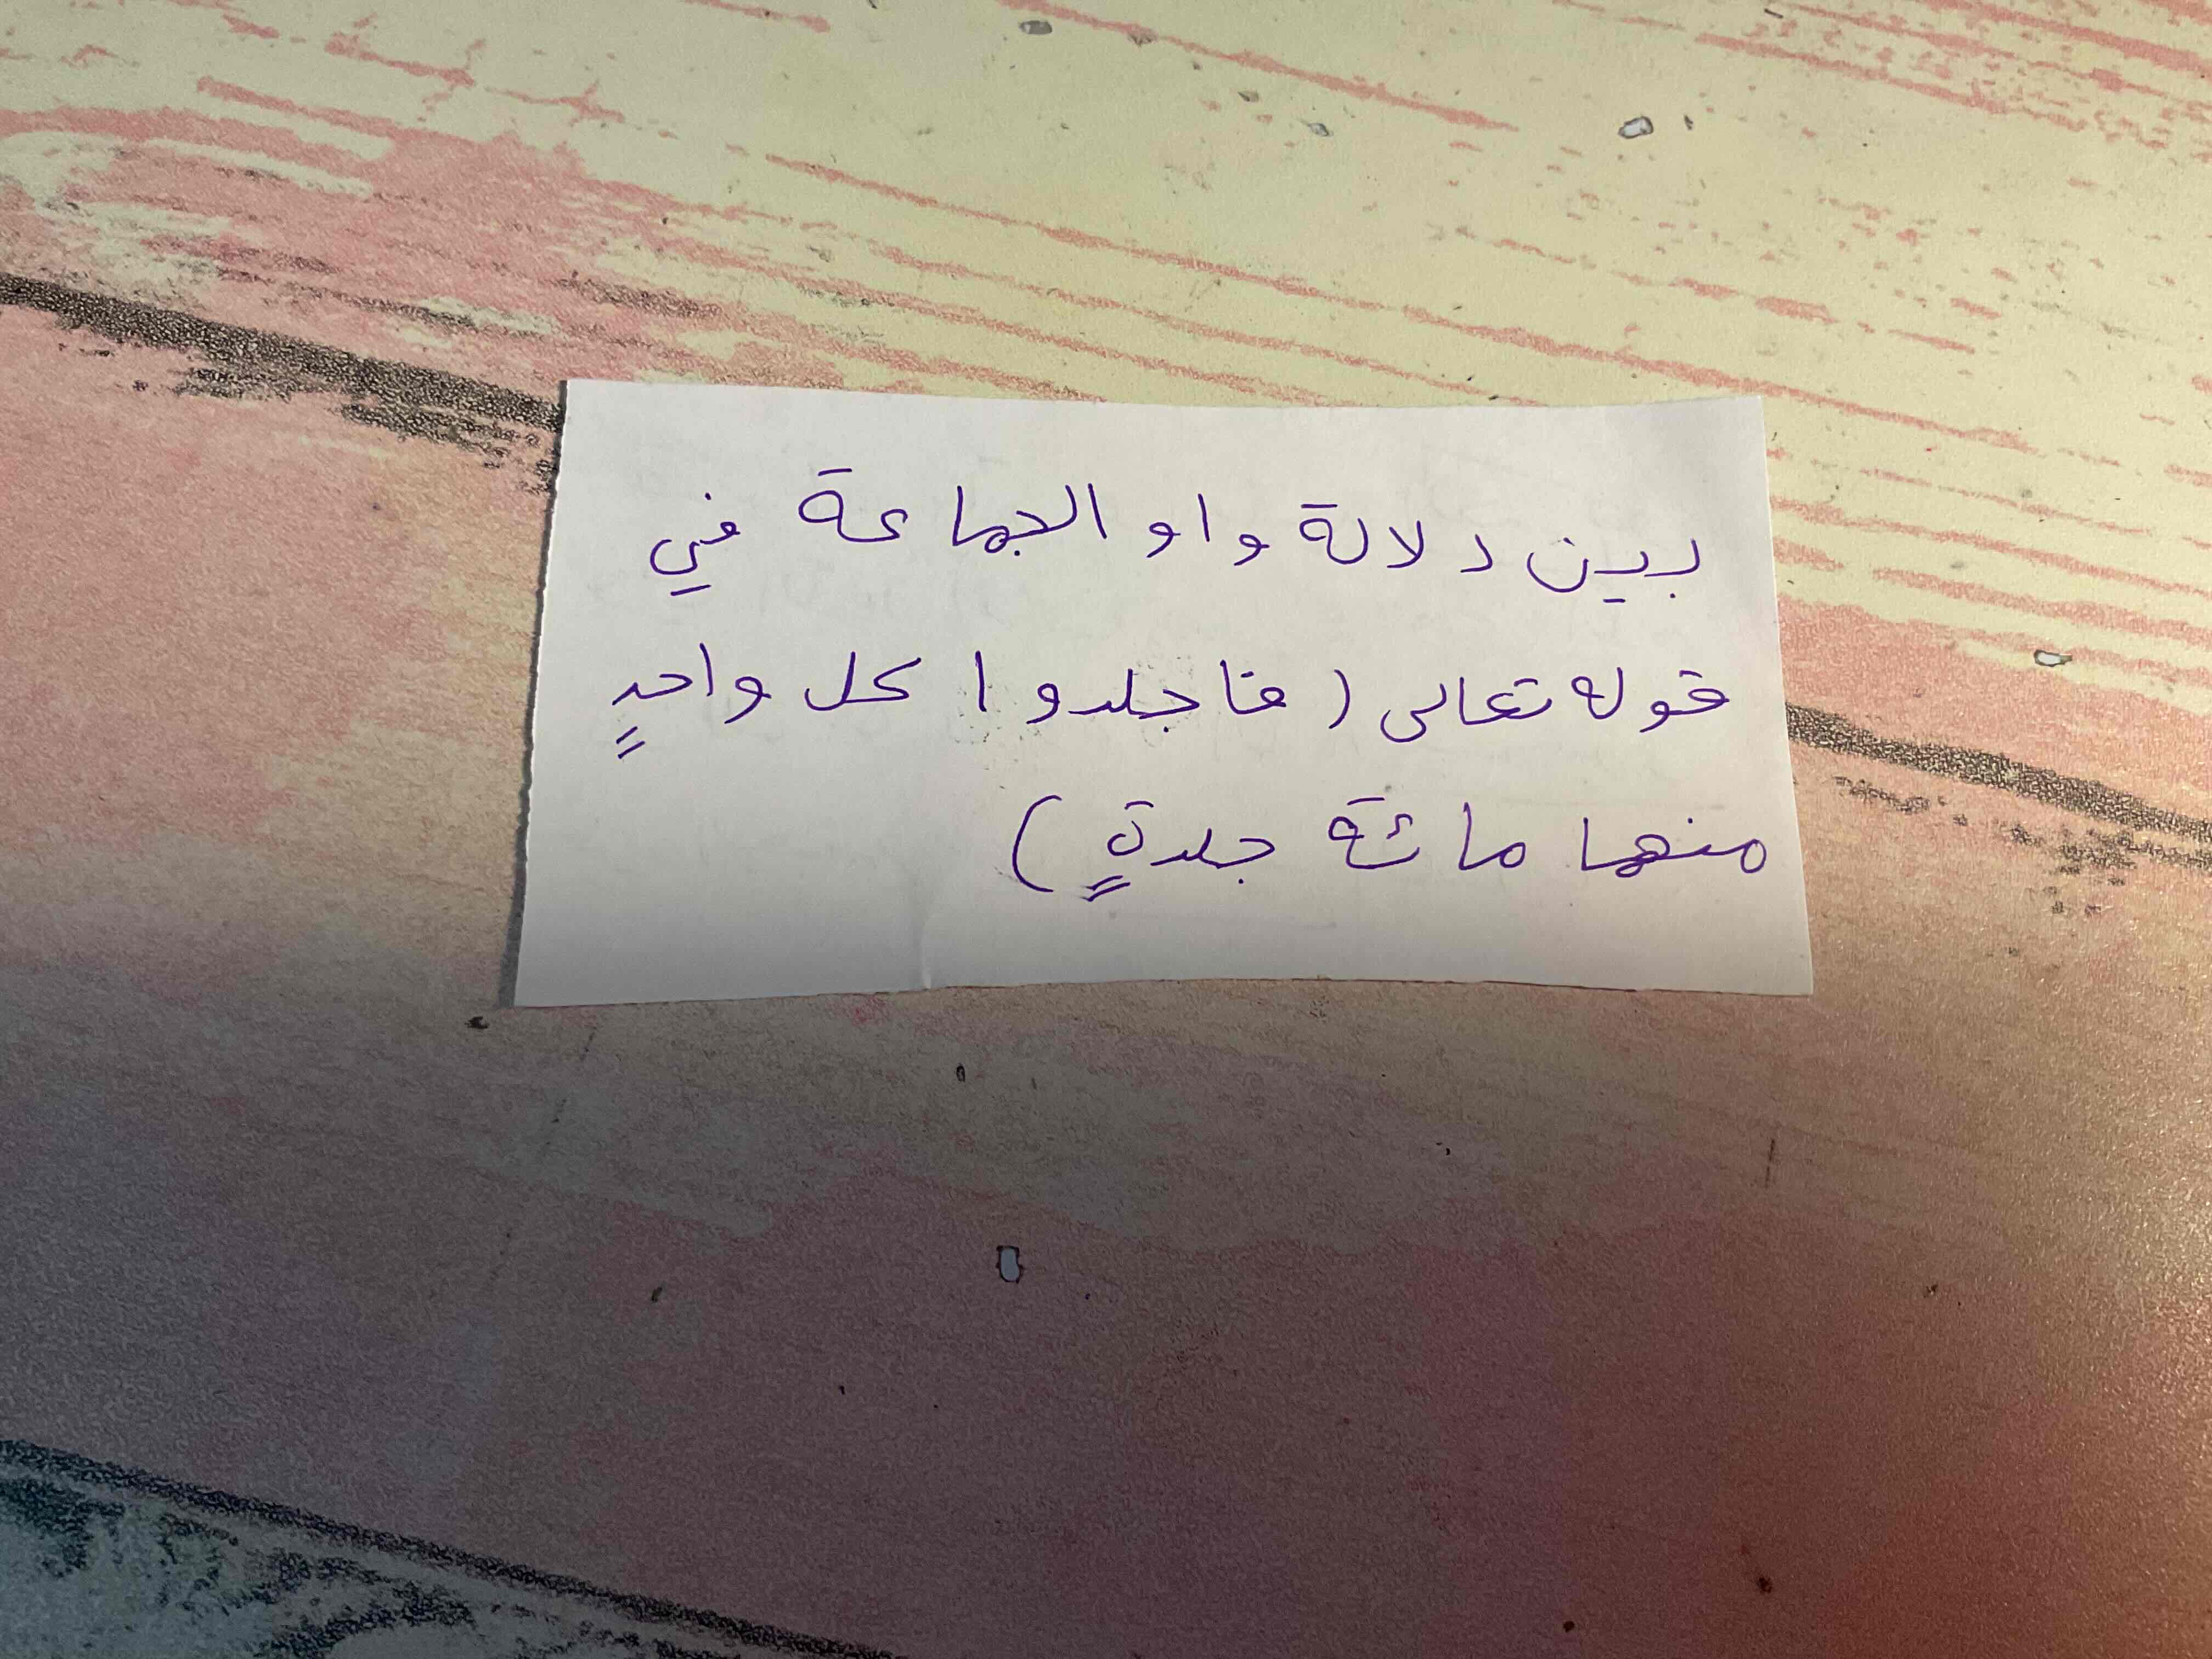 بين دلالة واو الجماعة في
قوله تعالى ( فاجلدوا كل واحدٍ
منهما مائة جلدةٍ )